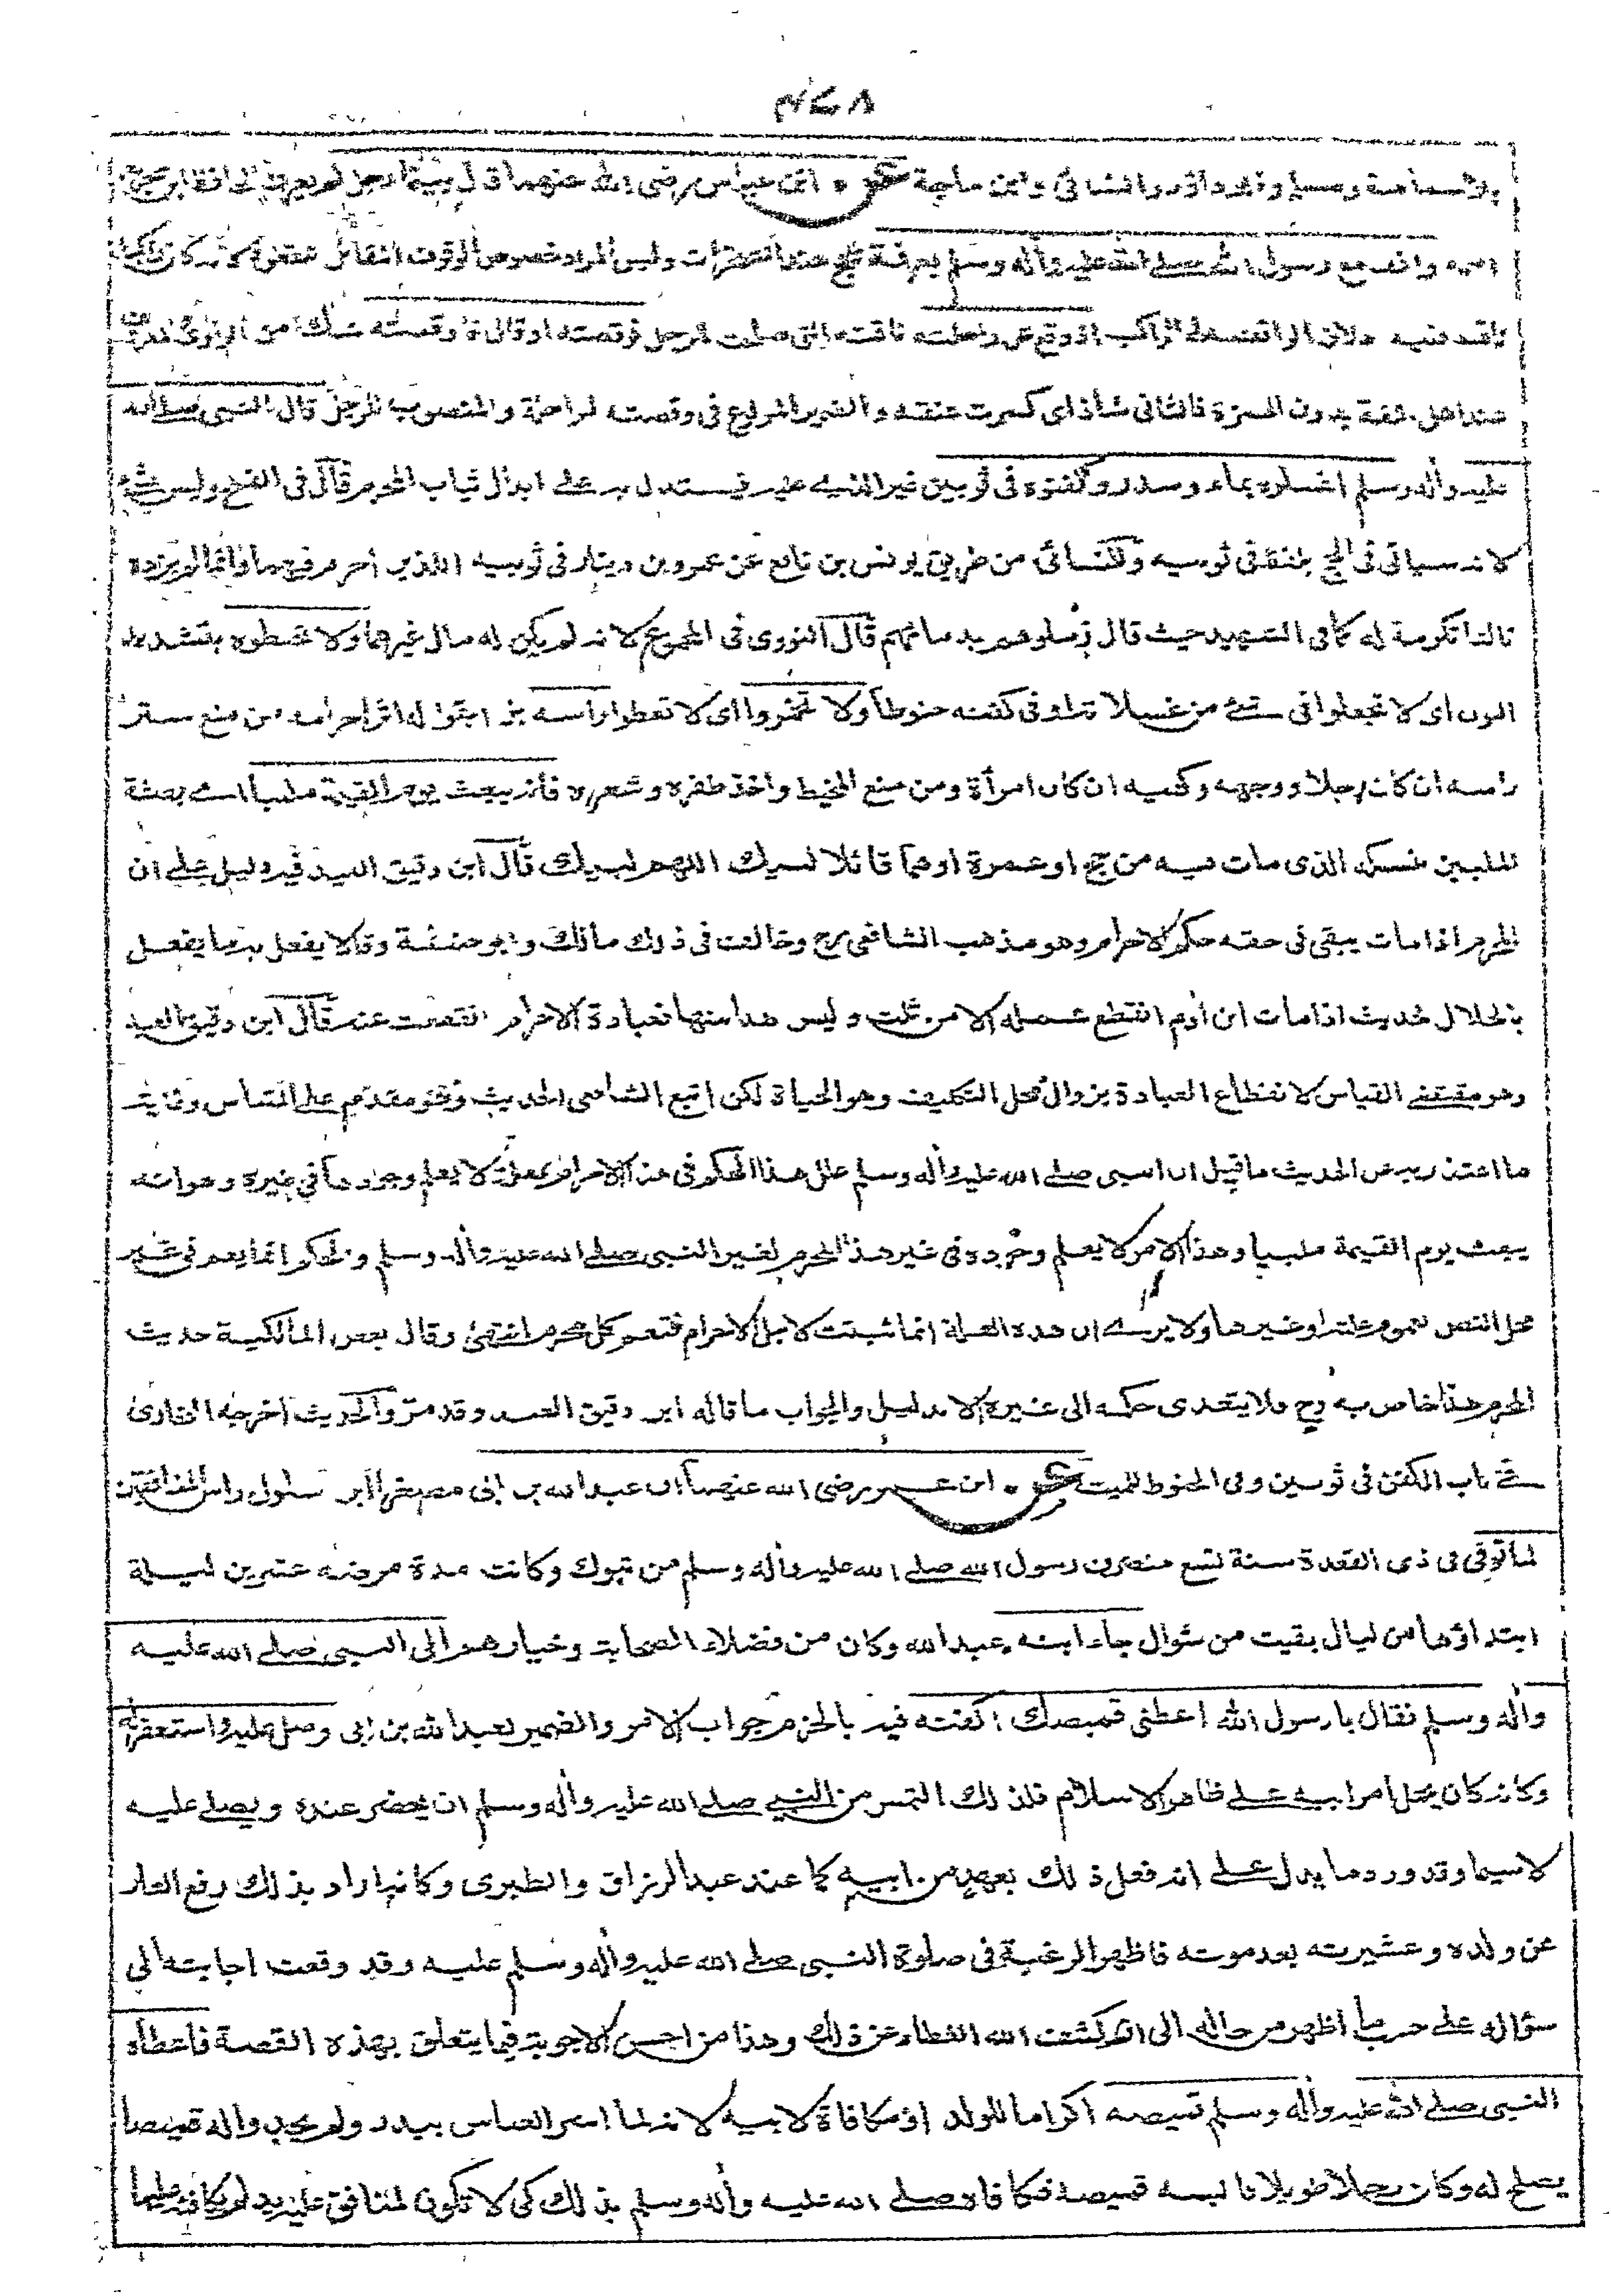 ٤٧٨
وسلم وابو داؤد والنسائى وابن ماجة عن ابن عباس رضى الله عنهما قال بينما رجل لم يعرف الحافظ ابن حجر
اسمه واقف مع رسول الله صلے الله عليه واله وسلم بعرفة للحج عند الصخرات وليس المراد خصوص الوقوف المقابل للقعود لانه كان راكبا
ناقته ففيه اطلاق الواقف على الراكب اذ وقع عن راحلته ناقته التى صلحت للرحل فوقصته او قال فاوقصته شك من الراوى
عند اهل اللغة بدون الهمزة فالثانى شاذ اى كسرت عنقه والضمير المرفوع فى وقصته للراحلة والمنصوب للرجل قال النبى صلے الله
عليه واله وسلم اغسلوه بماء وسدر وكفنوه فى ثوبين غير الذى عليه فيستدل به على ابدال ثياب المحرم قال فى الفتح وليس بشئ
لانه سياتى فى الحج بلفظ فى ثوبيه وللنسائى من طريق يونس بن نافع عن عمرو بن دينار فى ثوبيه اللذين احرم فيهما وانما لم يزده
ثالثا تكرمة له كما فى الشهيد حيث قال زملوهم بدمائهم قال النووى فى المجموع لانه لم يكن له مال غيرهما ولا تحنطوه بتشديد
النون اى لا تجعلوا فى شئ من غسلاته او فى كفنه حنوطا ولا تخمروا اى لا تغطوا راسه بل ابقوا له اثر احرامه من منع ستر
راسه ان كان رجلا ووجهه وكفيه ان كان امرأة ومن منع المخيط واخذ ظفره وشعره فانه يبعث يوم القيمة ملبيا اى بصفة
الملبين بنسكه الذى مات فيه من حج او عمرة او هما قائلا لبيك اللهم لبيك قال ابن دقيق العيد فيه دليل على ان
المحرم اذا مات يبقى فى حقه حكم الاحرام وهو مذهب الشافعى رح وخالف فى ذلك مالك وابو حنيفة وقالا يفعل به ما يفعل
بالحلال لحديث اذا مات ابن ادم انقطع عمله الا من ثلث وليس هذا منها فعبادة الاحرام انقطعت عنه قال ابن دقيق العيد
وهو مقتضے القياس لانقطاع العبادة بزوال محل التكليف وهو الحياة لكن اتبع الشافعى الحديث وهو مقدم على القياس وغاية
ما اعتذر به عن الحديث ما قيل ان النبى صلے الله عليه واله وسلم علل هذا الحكم فى هذا الاحرام بعلة لا يعلم وجودها فى غيره وهو انه
يبعث يوم القيمة ملبيا وهذا الامر لا يعلم وجوده فى غير هذا المحرم لغير النبى صلے الله عليه واله وسلم والحكم انما يعم فى غير
محل النص بعموم علته او غيرها ولا يرے ان هذه العلة انما ثبتت لاجل الاحرام فتعم كل محرم انتهى وقال بعض المالكية حديث
المحرم هذا خاص به رح فلا يتعدى حكمه الى غيره الا بدليل والجواب ما قاله ابن دقيق العيد وقد مر والحديث اخرجه البخارى
فے باب الكفن فى ثوبين وفى الحنوط للميت عن ابن عمر رضى الله عنهما ان عبد الله بن ابى مصغرا ابن سلول راس المنافقين
لما توفى فى ذى القعدة سنة تسع منصرف رسول الله صلے الله عليه واله وسلم من تبوك وكانت مدة مرضه عشرين ليلة
ابتداؤها من ليال بقيت من شوال جاء ابنه عبد الله وكان من فضلاء الصحابة وخيارهم الى النبى صلے الله عليه
واله وسلم فقال يا رسول الله اعطنى قميصك اكفنه فيه بالجزم جواب الامر والضمير لعبد الله بن ابى وصل عليه واستغفر له
وكانه كان يحمل امر ابيه على ظاهر الاسلام فلذلك التمس من النبى صلے الله عليه واله وسلم ان يحضر عنده ويصلے عليه
لاسيما وقد ورد ما يدل على انه فعل ذلك بعهد من ابيه كما عند عبد الرزاق والطبرى وكانه اراد بذلك رفع العار
عن ولده وعشيرته بعد موته فاظهر الرغبة فى صلوة النبى صلے الله عليه واله وسلم عليه وقد وقعت اجابته الى
سؤاله على حسب ما اظهر من حاله الى ان كشف الله الغطاء عن ذلك وهذا من احسن الاجوبة فيما يتعلق بهذه القصة فاعطاه
النبى صلے الله عليه واله وسلم قميصه اكراما للولد او مكافاة لابيه لانه لما اسر العباس ببدر ولم يجدوا له قميصا
يصلح له وكان رجلا طويلا فالبسه قميصه فكافاه صلے الله عليه واله وسلم بذلك كى لا تكون لمنافق عليه يد لم يكافئه عليها